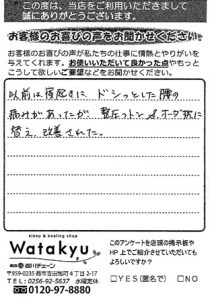 この度は、当店をご利用いただきまして
誠にありがとうございます。
お客様のお喜びの声をお聞かせください
お客様のお喜びの声が私たちの仕事に情熱とやりがいを
与えてくれます。お使いいただいて良かった点やもっと
こうして欲しいご要望などをお聞かせください。
以前は寝起きに、ドシッとした腰の
痛みがあったが、整圧ふとん オーダー枕に
替え、改善くれた。
sleep & healing shop
Watakyu
西川チェーン
〒959-0235 燕市吉田旭町4丁目2-17
TEL: 0256-92-5637 水曜定休
0120-97-8880
このアンケートを店頭の掲示板や
HP上でご紹介させていただいても
よろしいですか?
□YES(匿名で) □NO